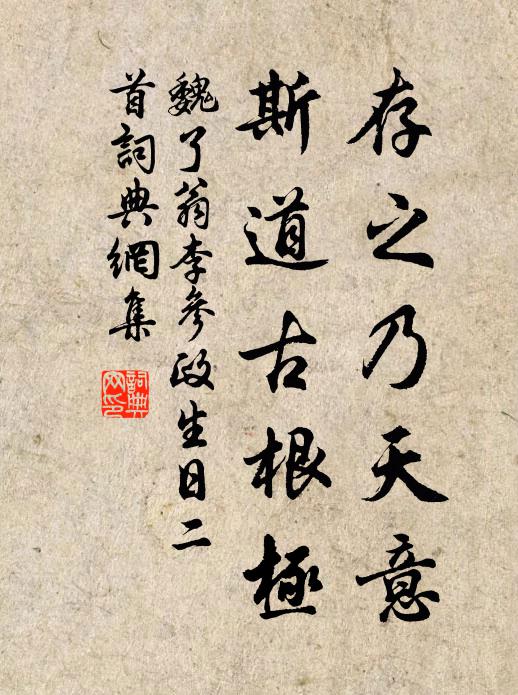 存之乃天意
斯道古根極
魏了翁李參政生日二
首詞典網集
詞典
网印